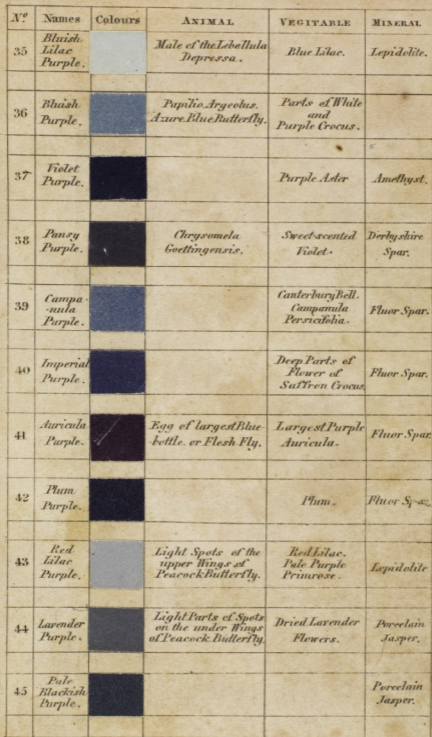 No. Names Colours ANIMAL VEGITABLE MINERAL
35 Bluish Lilac Purple. Male of the Lebellula Depressa. Blue Lilac. Lepidolite.
36 Bluish Purple. Papilio Argeolus. Azure Blue Butterfly. Parts of White and Purple Crocus.
37 Violet Purple. Purple Aster Amethyst.
38 Pansy Purple. Chrysomela Goettingensis. Sweet-scented Violet. Derbyshire Spar.
39 Campa-nula Purple. Canterbury Bell. Campanula Persicifolia. Fluor Spar.
40 Imperial Purple. Deep Parts of Flower of Saffron Crocus. Fluor Spar.
41 Auricula Purple. Egg of largest Blue-bottle. or Flesh Fly. Largest Purple Auricula. Fluor Spar.
42 Plum Purple. Plum. Fluor Spar.
43 Red Lilac Purple. Light Spots of the upper Wings of Peacock Butterfly. Red Lilac. Pale Purple Primrose. Lepidolite
44 Lavender Purple. Light Parts of Spots on the under Wings of Peacock Butterfly. Dried Lavender Flowers. Porcelain Jasper.
45 Pale Blackish Purple. Porcelain Jasper.